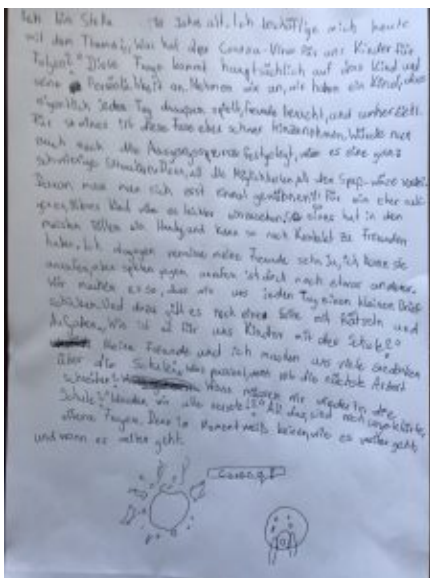 Ich bin Stella 10 Jahre alt. Ich beschäftige mich heute
mit dem Thema: Was hat der Corona-Virus für uns Kinder für
Folgen? Diese Frage kommt hauptsächlich auf das Kind und
seine Persönlichkeit an. Nehmen wir an, wir haben ein Kind, das
eigentlich jeden Tag draussen spielt, Freunde besucht, und
Für so eines ist diese eher schwer hinzunehmen. Würde nun
auch noch die Ausgangssperre festgelegt, wäre es eine ganz
schwierige Situation. Denn, all die Möglichkeiten, all der Spaß wäre
Daran muss man sich erst einmal gewöhnen! Für ein eher
Kind wäre es leichter So eines hat in den
meisten Fällen ein Handy und kann so noch Kontakt zu Freunden
haben. Ich dagegen vermisse meine Freunde sehr. Ja, ich kann sie
anrufen, aber spielen gegen anrufen ist doch noch etwas anderes.
Wir machen es so, dass wir uns jeden Tag einen kleinen Brief
schicken. Und dazu gibt es noch eine Seite mit Rätseln und
Aufgaben. Wie ist es für uns Kinder mit der Schule?
Meine Freunde und ich machen uns viele Gedanken
über die Schule. Was passiert, wenn ich die nächste Arbeit
schreibe? Wann müssen wir wieder in die
Schule? Werden wir alle versetzt? All das sind noch ungeklärte,
offene Fragen. Denn im Moment weiß keiner, wie es weiter geht,
und wann es weiter geht.
Corona!